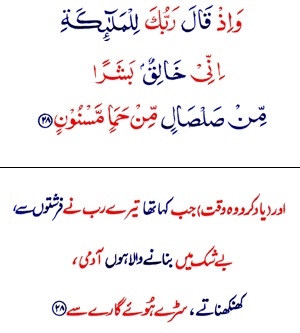 وَاِذْ قَالَ رَبُّكَ لِلْمَلٰٓئِكَةِ
اِنِّىْ خَالِقٌۢ بَشَرًا
مِّنْ صَلْصَالٍ مِّنْ حَمَاٍ مَّسْنُوْنٍ ﴿۲۸﴾
اور (یاد کرو وہ وقت) جب کہا تھا تیرے رب نے فرشتوں سے،
بے شک میں بنانے والا ہوں آدمی،
کھنکھناتے، سڑے ہُوئے گارے سے ﴿۲۸﴾